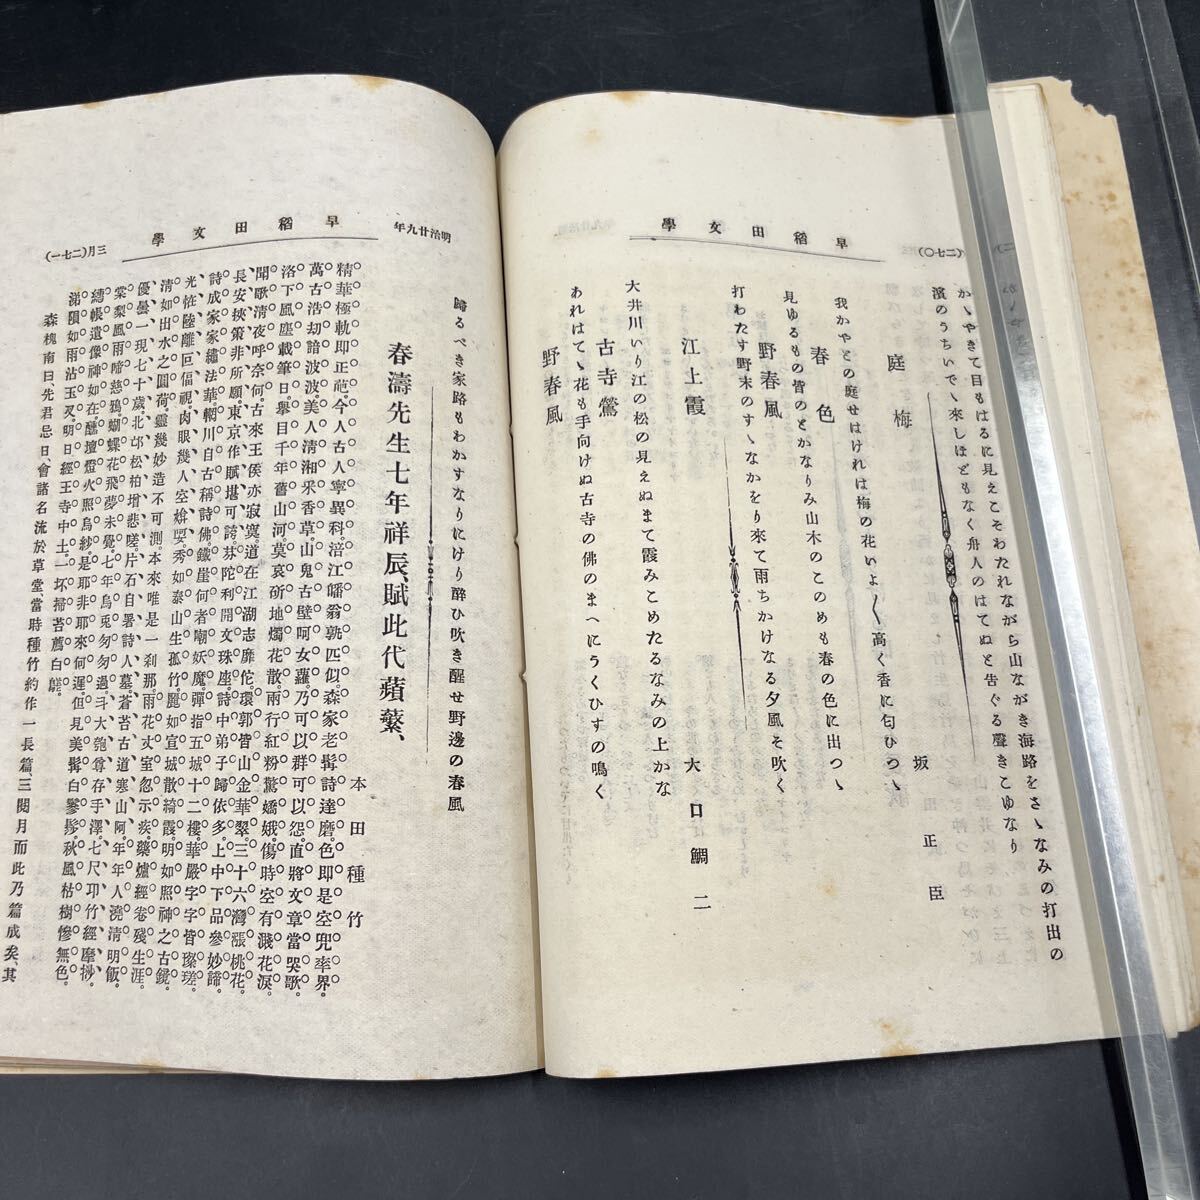 早稻田文學
(二七〇)
かゝやきて目もはるに見えこそわたれながら山ながき海路をさゝなみの打出の
濱のうちいでゝ來しほどもなく舟人のはてぬと告ぐる聲きこゆなり
坂正臣
庭梅
我かやとの庭せはけれは梅の花いよ〱高く香に匂ひつゝ
春色
見ゆるもの皆のとかなりみ山木のこのめも春の色に出つゝ
野春風
打わたす野末のすゝなかをり來て雨ちかけなる夕風そ吹く
大口鯛二
江上霞
大井川いり江の松の見えぬまて霞みこめたるなみの上かな
古寺鶯
あれはてゝ花も手向けぬ古寺の佛のまへにうくひすの鳴く
野春風
明治廿九年
早稻田文學
三月(二七一)
歸るべき家路もわかすなりにけり醉ひ吹き醒せ野邊の春風
春濤先生七年祥辰、賦此代蘋蘩、
本田種竹
精華極軌即正葩。今人古人寧異科。涪江皤翁孰匹似。森家老髯詩達磨。色即是空兜率界。
萬古浩劫諳波波。美人清湘釆香草。山鬼古壁呵女蘿。乃可以群可以怨。直將文章當哭歌。
洛下風塵載筆日。擧目千年舊山河。莫哀斫地燭花散。兩行紅粉驚嬌娥。傷時空有濺花淚。
聞歌清夜呼奈何。古來王侯亦寂寞。道在江湖志靡佗。環郭皆山金華翠。三十六灣漲桃花。
長安挾策非所願。東京作賦堪可誇。芬陀利開文珠座。詩中弟子歸依多。上中下品參妙諦。
詩成家家繡法華。輞川自古稱詩佛。鐵崖何者嘲妖魔。彈指五城十二樓。華嚴字字皆璨瑳。
光恠陸離巨偪視。肉眼幾人空媕娿。秀如泰山生孤竹。麗如宣城散綺霞。明如照神之古鏡。
清如出水之圓荷。靈幾妙造不可測。本來唯是一刹那。雨花丈室忽示疾。藥爐經卷殘生涯。
優曇一現七十歲。北邙松柏增悲嗟。片石自署詩人墓。蒼苔古道寒山阿。年年人澆清明飯。
棠梨風雨啼慈鴉。蝴蝶花飛夢未覺。七年烏兎匆匆過。斗大匏尊存手澤。七尺邛竹經摩挱。
繐帳遺像神如在。醮壇燈火照烏紗。是耶非耶來何遲。但見美髯白鬖髿。秋風枯樹慘無色。
涕隕如雨沾玉叉。明日經王寺中土。一坏掃苔薦白醝。
森槐南曰、先君忌日、會諸名流於草堂、當時種竹約作一長篇、三閱月而此乃篇成矣、其